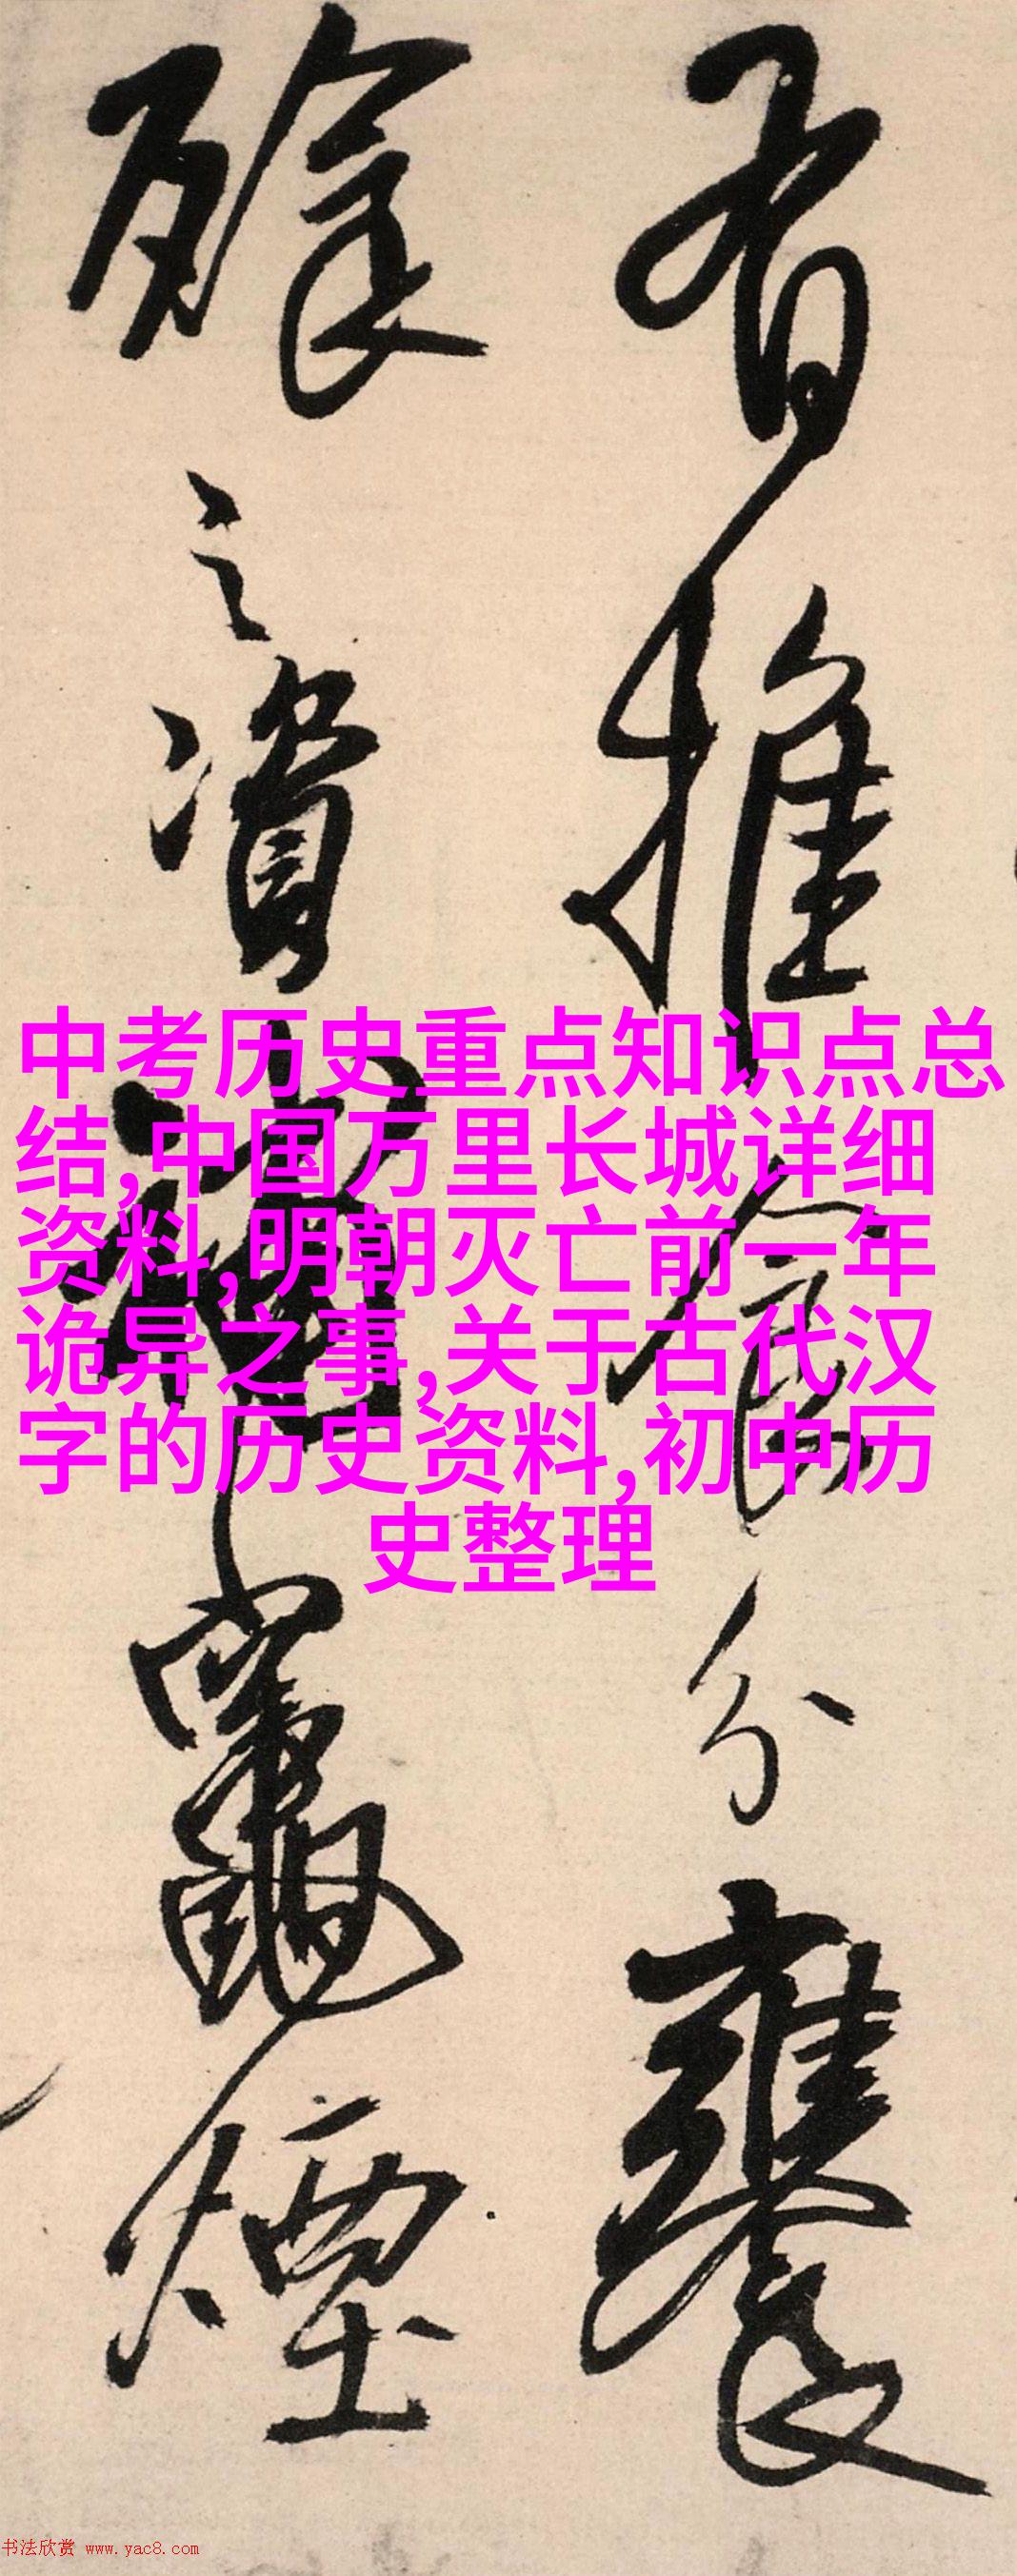 有推食分饔
飱之資竈煙
中考历史重点知识点总
结,中国万里长城详细
资料,明朝灭亡前一年
诡异之事,关于古代汉
字的历史资料,初中历
史整理
书法欣赏 www.yac8.com